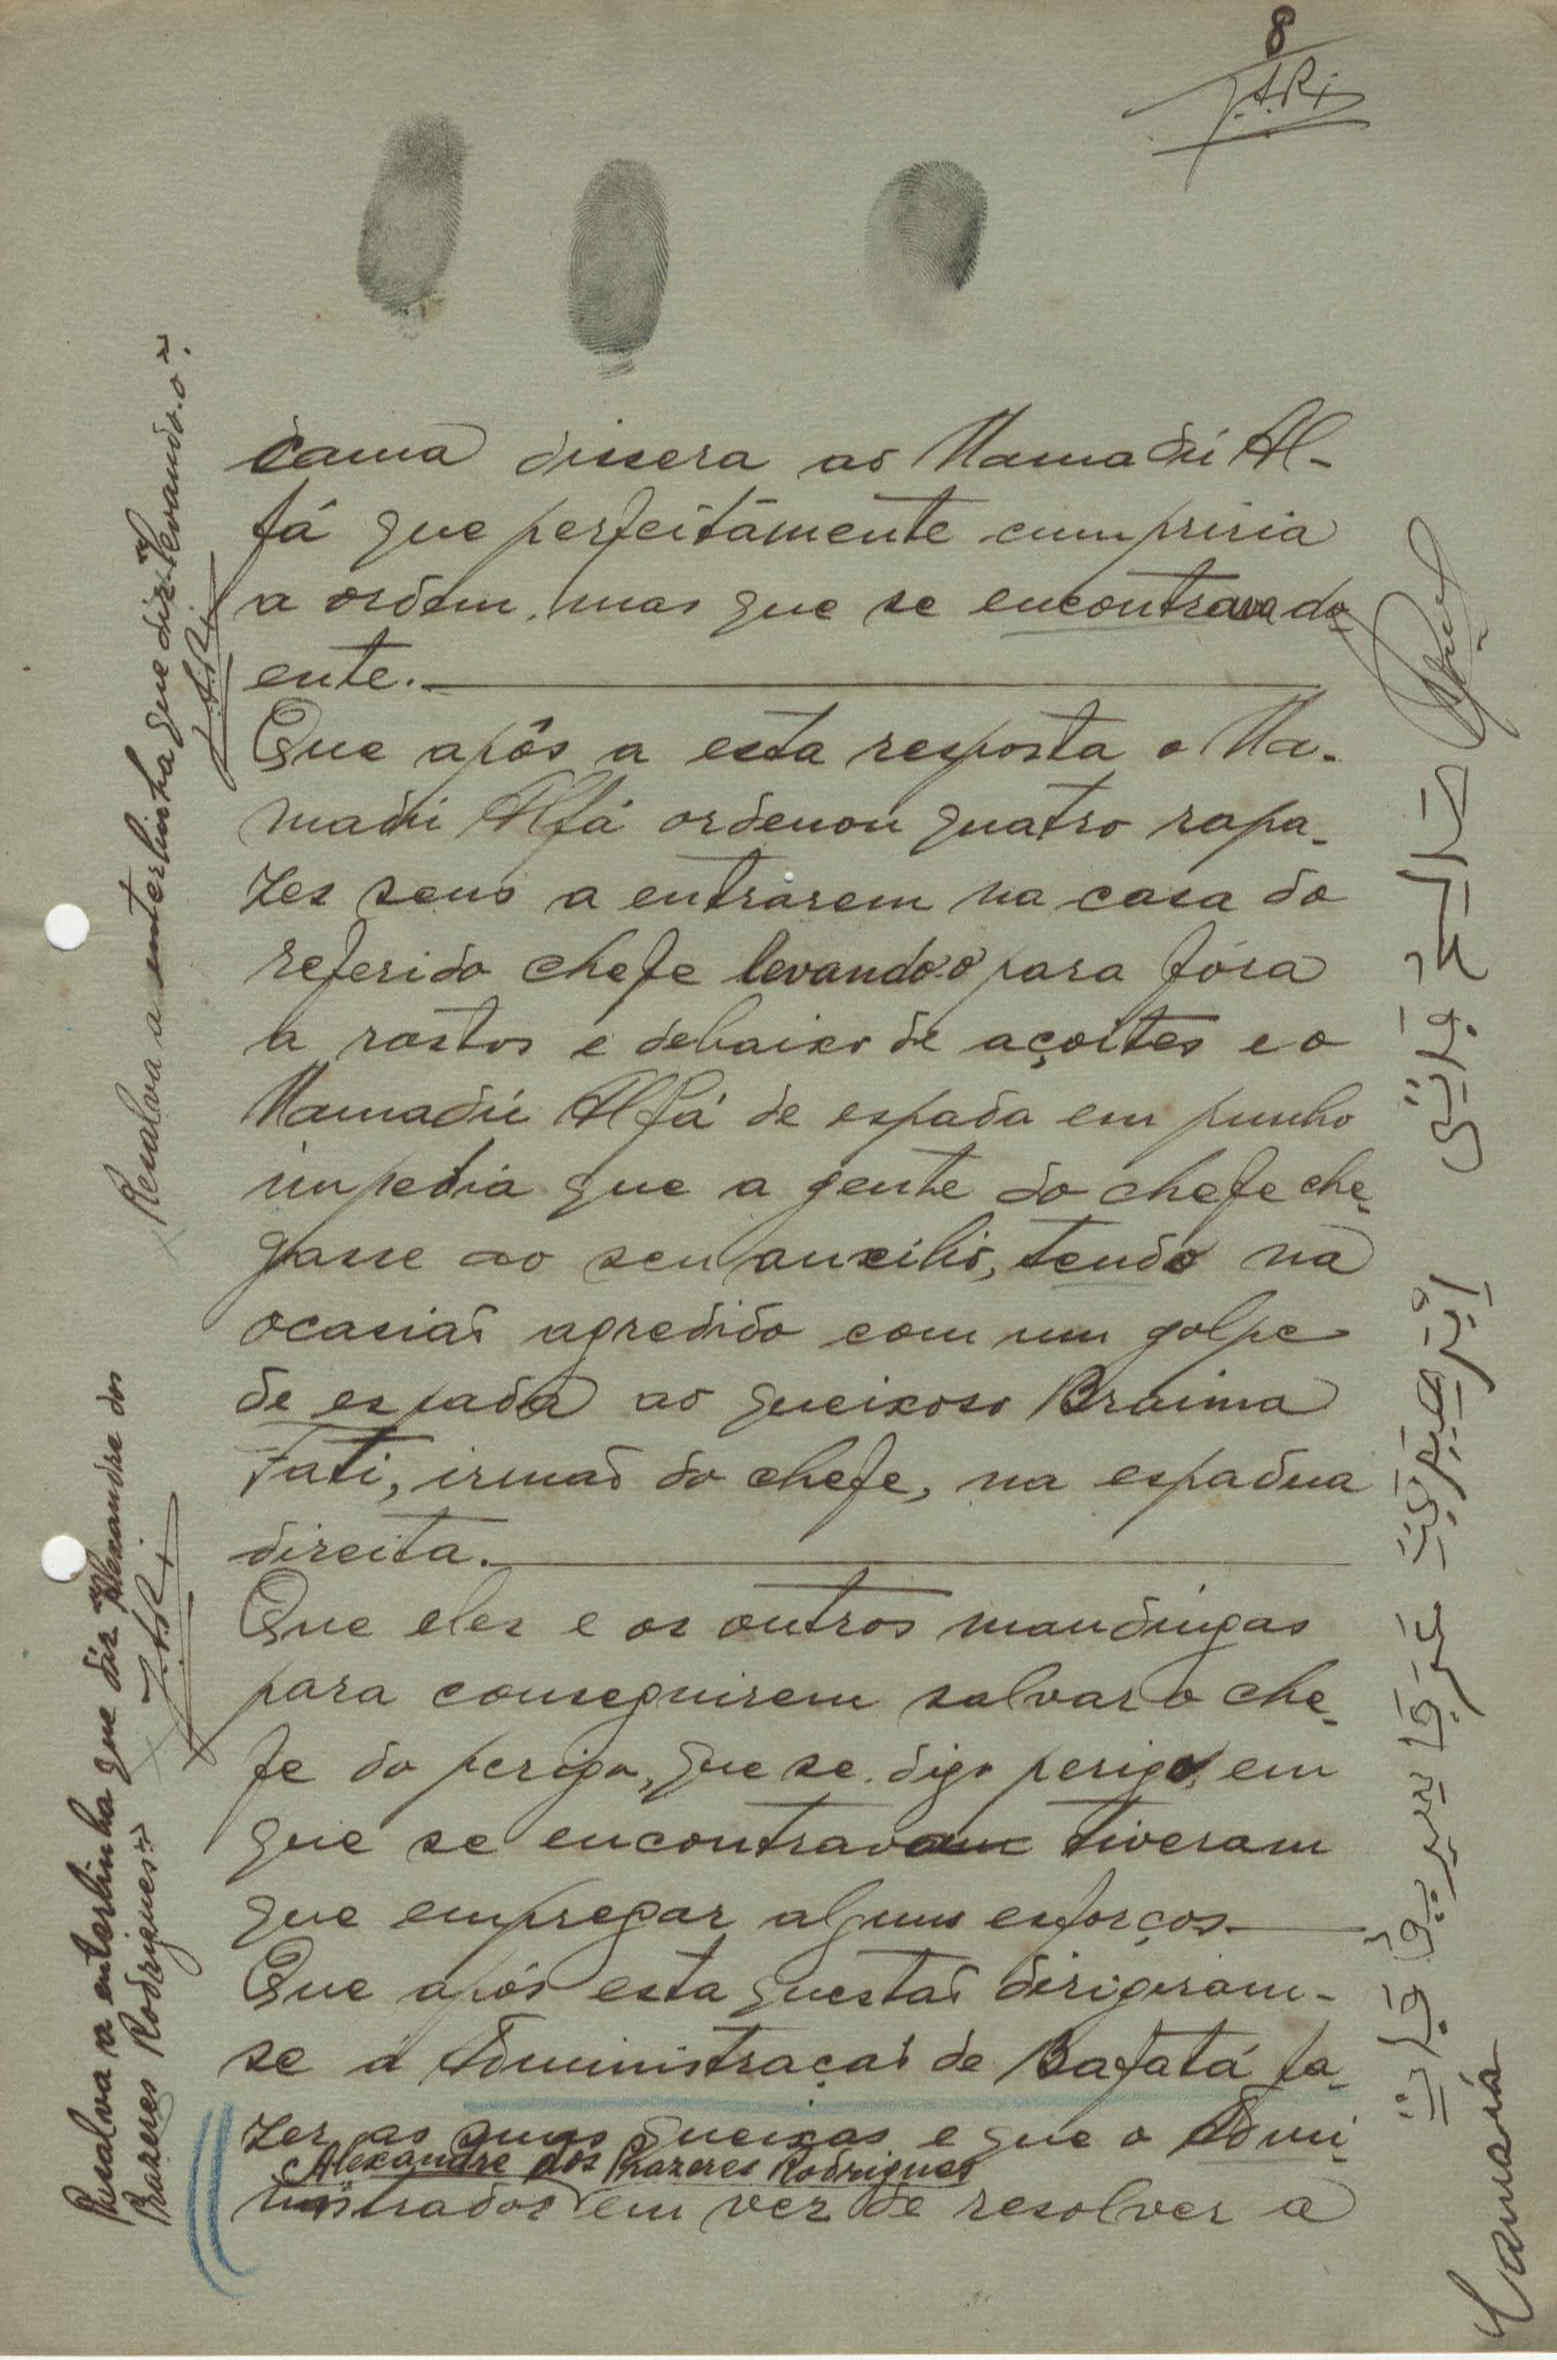 8
J.A.Ri
cama dissera ao Mamadú Al-
fá que perfeitamente cumpriria
a ordem, mas que se encontrava do
ente.
Que após a esta resposta o Ma-
madú Alfá ordenou quatro rapa-
zes seus a entrarem na casa do
referido chefe levando-o para fóra
a rastos e debaixo de açoites e o
Mamadú Alfá de espada em punho
impedia que a gente do chefe che-
gasse ao seu auxilio, tendo na
ocasião agredido com um golpe
de espada ao queixoso Braima
Fati, irmão do chefe, na espadua
direita.
Que eles e os outros mandingas
para conseguirem salvar o che-
fe do perigo, que se, digo perigo, em
que se encontravam tiveram
que empregar alguns esforços
Que após esta questão dirigiram-
se á Administração de Bafatá fa-
zer as suas queixas e que o Admi-
Alexandre dos Prazeres Rodrigues
nistrador em vez de resolver a
Resalva a enterlinha que diz "levando-o".
J.A.Ri
Resalva a enterlinha que diz "Alexandre dos
Prazeres Rodrigues"
J.A.Ri